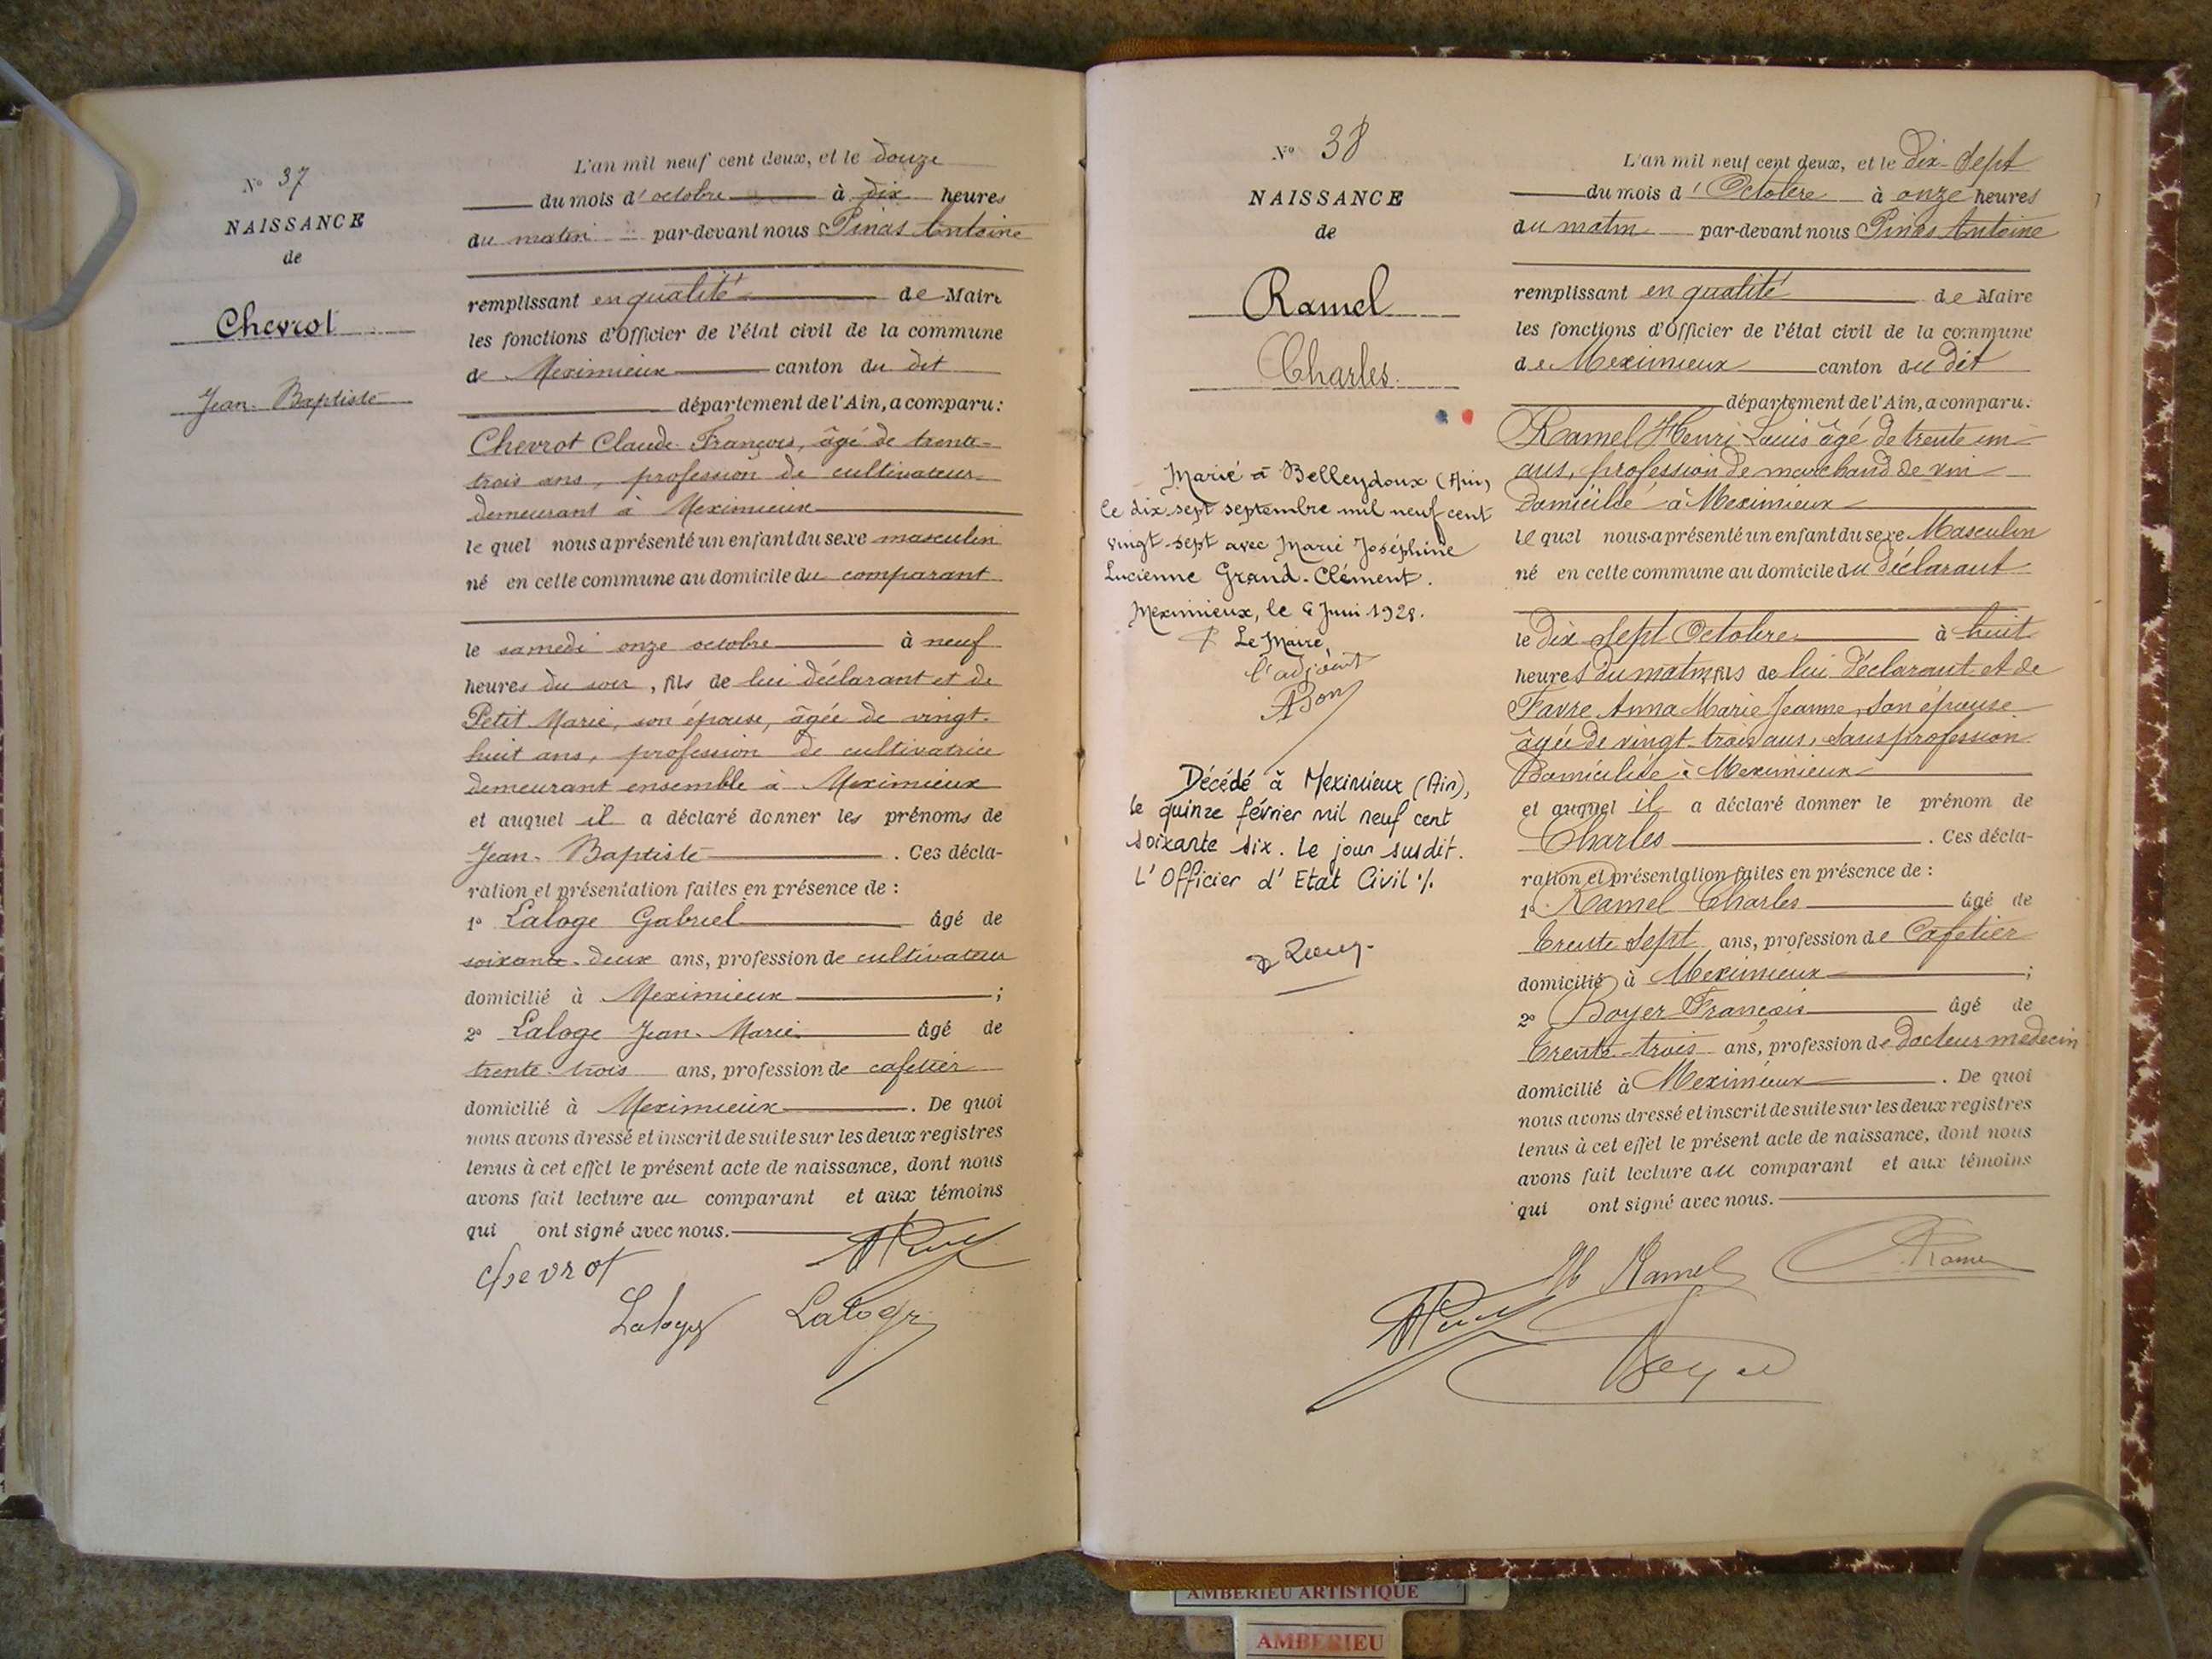 N° 37
NAISSANCE
de
Chevrot
Jean-Baptiste
L'an mil neuf cent deux, et le douze
du mois d'octobre à dix heures
du matin par-devant nous Pinas Antoine
remplissant en qualité de Maire
les fonctions d'Officier de l'état civil de la commune
de Meximieux canton du dit
département de l'Ain, a comparu:
Chevrot Claude-François, âgé de trente-
trois ans, profession de cultivateur
demeurant à Meximieux
le quel nous a présenté un enfant du sexe masculin
né en cette commune au domicile du comparant
le samedi onze octobre à neuf
heures du soir, fils de lui déclarant et de
Petit Marie, son épouse, âgée de vingt-
huit ans, profession de cultivatrice
demeurant ensemble à Meximieux
et auquel il a déclaré donner les prénoms de
Jean-Baptiste . Ces décla-
ration et présentation faites en présence de :
1° Laloge Gabriel âgé de
soixante-deux ans, profession de cultivateur
domicilié à Meximieux ;
2° Laloge Jean-Marie âgé de
trente-trois ans, profession de cafetier
domicilié à Meximieux . De quoi
nous avons dressé et inscrit de suite sur les deux registres
tenus à cet effet le présent acte de naissance, dont nous
avons fait lecture au comparant et aux témoins
qui ont signé avec nous.
Chevrot
Laloge Laloge
N° 38
NAISSANCE
de
Ramel
Charles
Marié à Belleydoux (Ain)
le dix-sept septembre mil neuf cent
vingt-sept avec Marie Joséphine
Lucienne Grand-Clément.
Meximieux, le 6 Juin 1928.
Le Maire,
l'adjoint
Décédé à Meximieux (Ain),
le quinze février mil neuf cent
soixante six. Le jour susdit.
L'Officier d'Etat Civil ./.
L'an mil neuf cent deux, et le dix-sept
du mois d'Octobre à onze heures
du matin par-devant nous Pinas Antoine
remplissant en qualité de Maire
les fonctions d'Officier de l'état civil de la commune
de Meximieux canton du dit
département de l'Ain, a comparu:
Ramel Henri Louis âgé de trente un
ans, profession de marchand de vin
Domicilié à Meximieux
le quel nous a présenté un enfant du sexe Masculin
né en cette commune au domicile du déclarant
le Dix sept Octobre à huit
heures du matin, fils de lui déclarant et de
Favre Anna Marie Jeanne, son épouse
âgée de vingt-trois ans, sans profession
Domiciliée à Meximieux
et auquel il a déclaré donner le prénom de
Charles . Ces décla-
ration et présentation faites en présence de :
1° Ramel Charles âgé de
trente sept ans, profession de Cafetier
domicilié à Meximieux ;
2° Boyer François âgé de
trente-trois ans, profession de Docteur medecin
domicilié à Meximieux . De quoi
nous avons dressé et inscrit de suite sur les deux registres
tenus à cet effet le présent acte de naissance, dont nous
avons fait lecture au comparant et aux témoins
qui ont signé avec nous.
H Ramel
Boyer
AMBERIEU ARTISTIQUE
AMBERIEU